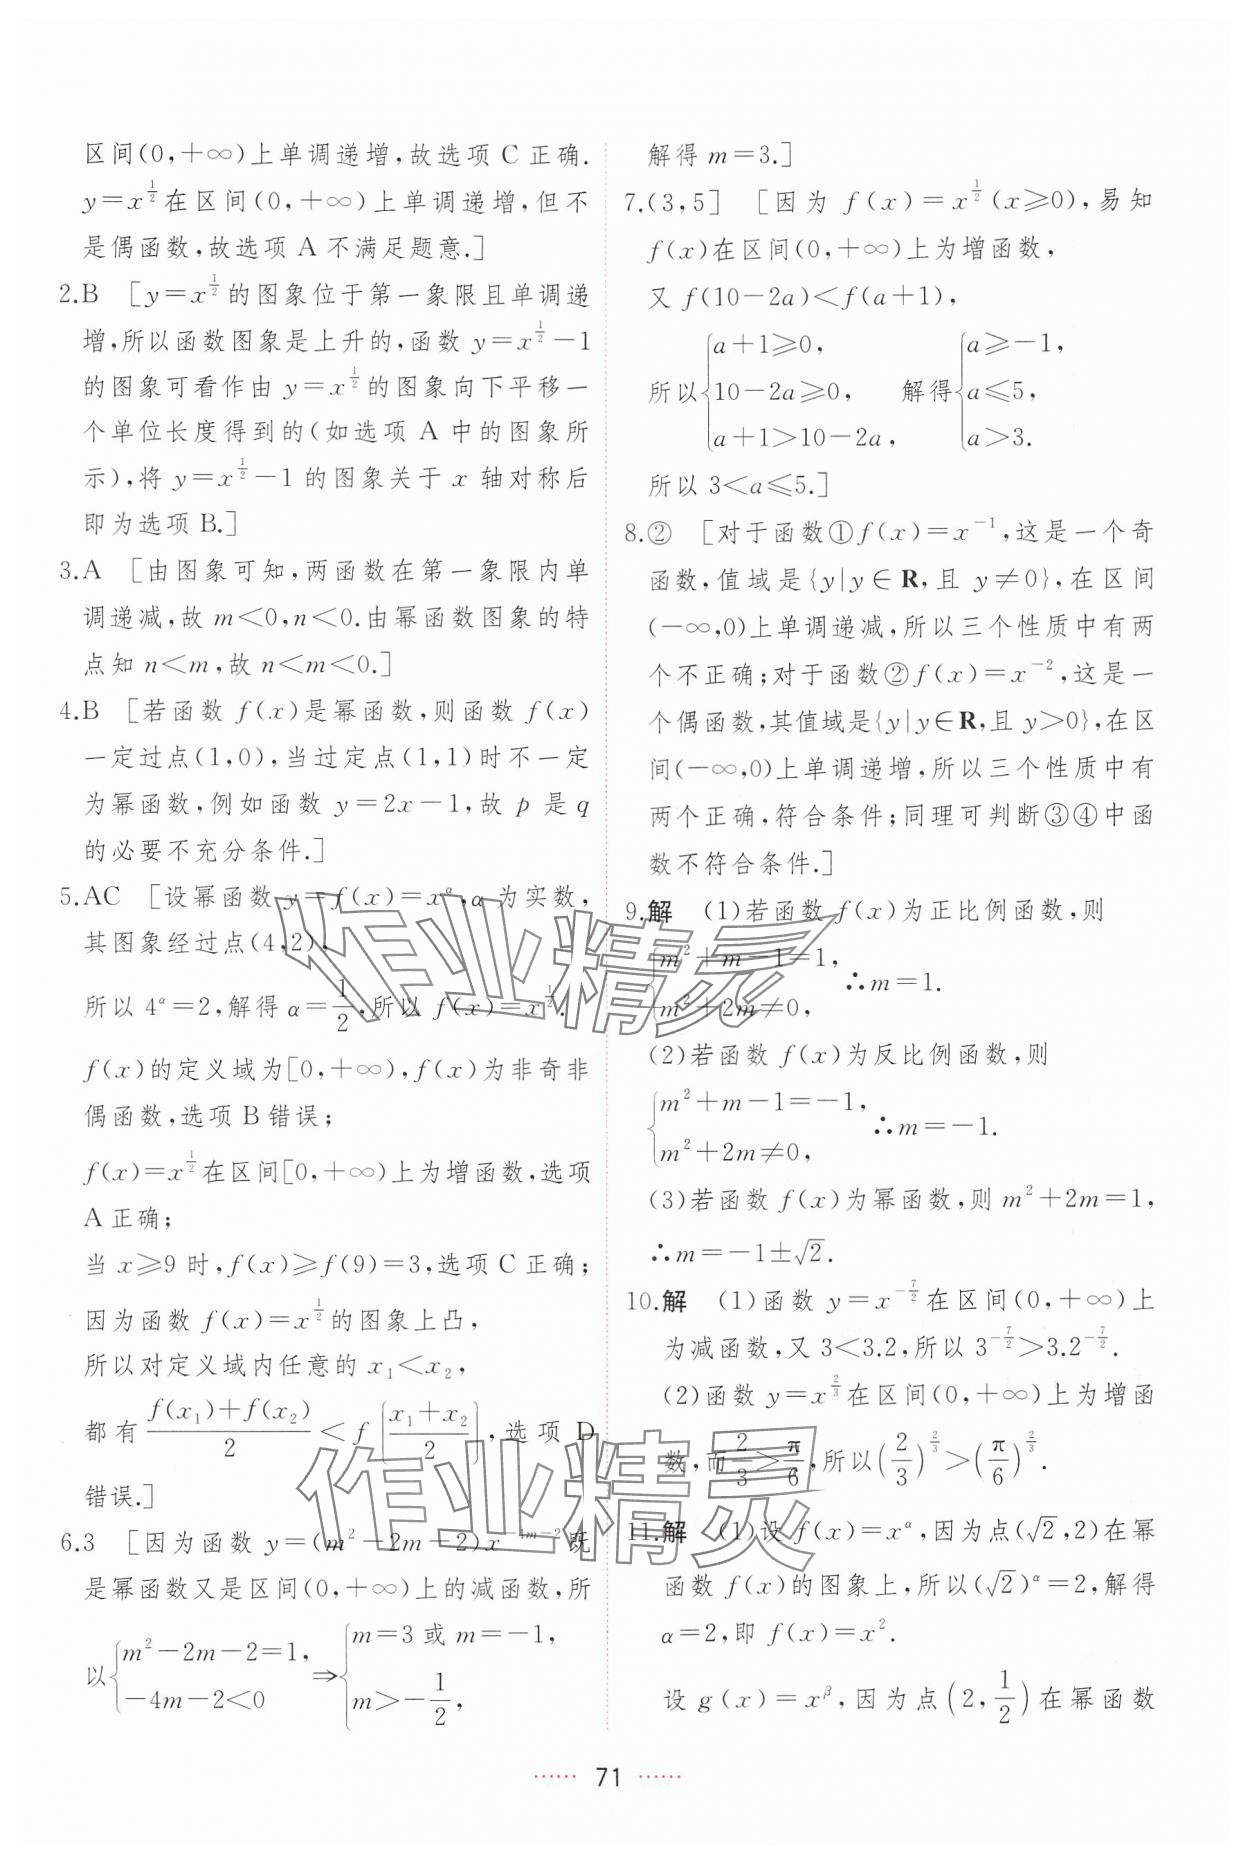 区间(0,+∞)上单调递增,故选项 C 正确.
y=x^{1/2}在区间(0,+∞)上单调递增,但不
是偶函数,故选项 A 不满足题意.]
2.B [y=x^{1/2}的图象位于第一象限且单调递
增,所以函数图象是上升的,函数 y=x^{1/2}-1
的图象可看作由 y=x^{1/2}的图象向下平移一
个单位长度得到的(如选项 A 中的图象所
示),将 y=x^{1/2}-1 的图象关于 x 轴对称后
即为选项 B.]
3.A [由图象可知,两函数在第一象限内单
调递减,故 m<0,n<0.由幂函数图象的特
点知 n<m,故 n<m<0.]
4.B [若函数 f(x)是幂函数,则函数 f(x)
一定过点(1,0),当过定点(1,1)时不一定
为幂函数,例如函数 y=2x-1,故 p 是 q
的必要不充分条件.]
5.AC [设幂函数 y=f(x)=x^α,α 为实数,
其图象经过点(4,2),
所以 4^α=2,解得 α=1/2,所以 f(x)=x^{1/2}.
f(x)的定义域为[0,+∞),f(x)为非奇非
偶函数,选项 B 错误;
f(x)=x^{1/2}在区间[0,+∞)上为增函数,选项
A 正确;
当 x≥9 时,f(x)≥f(9)=3,选项 C 正确;
因为函数 f(x)=x^{1/2}的图象上凸,
所以对定义域内任意的 x₁<x₂,
都有 (f(x₁)+f(x₂))/2 < f((x₁+x₂)/2),选项 D
错误.]
6.3 [因为函数 y=(m²-2m-2)x^{-4m-2}既
是幂函数又是区间(0,+∞)上的减函数,所
以{m²-2m-2=1, -4m-2<0 ⇒{m=3 或 m=-1, m>-1/2,
解得 m=3.]
7.(3,5] [因为 f(x)=x^{1/2}(x≥0),易知
f(x)在区间(0,+∞)上为增函数,
又 f(10-2a)<f(a+1),
所以{a+1≥0, 10-2a≥0, a+1>10-2a, 解得{a≥-1, a≤5, a>3.
所以 3<a≤5.]
8.② [对于函数①f(x)=x^{-1},这是一个奇
函数,值域是{y|y∈R,且 y≠0},在区间
(-∞,0)上单调递减,所以三个性质中有两
个不正确;对于函数②f(x)=x^{-2},这是一
个偶函数,其值域是{y|y∈R,且 y>0},在区
间(-∞,0)上单调递增,所以三个性质中有
两个正确,符合条件;同理可判断③④中函
数不符合条件.]
9.解 (1)若函数 f(x)为正比例函数,则
{m²+m-1=1, m²+2m≠0, ∴m=1.
(2)若函数 f(x)为反比例函数,则
{m²+m-1=-1, m²+2m≠0, ∴m=-1.
(3)若函数 f(x)为幂函数,则 m²+2m=1,
∴m=-1±√2.
10.解 (1)函数 y=x^{-7/2}在区间(0,+∞)上
为减函数,又 3<3.2,所以 3^{-7/2}>3.2^{-7/2}.
(2)函数 y=x^{2/3}在区间(0,+∞)上为增函
数,而 2/3>π/6,所以(2/3)^{2/3}>(π/6)^{2/3}.
11.解 (1)设 f(x)=x^α,因为点(√2,2)在幂
函数 f(x)的图象上,所以(√2)^α=2,解得
α=2,即 f(x)=x².
设 g(x)=x^β,因为点(2,1/2)在幂函数
71
作业精灵
作业精灵